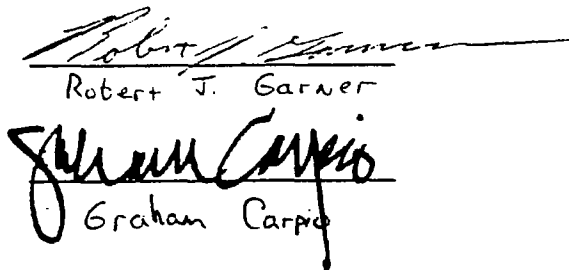 Robert J. Garner
Robert J. Garner
Graham Carpio
Graham Carpio